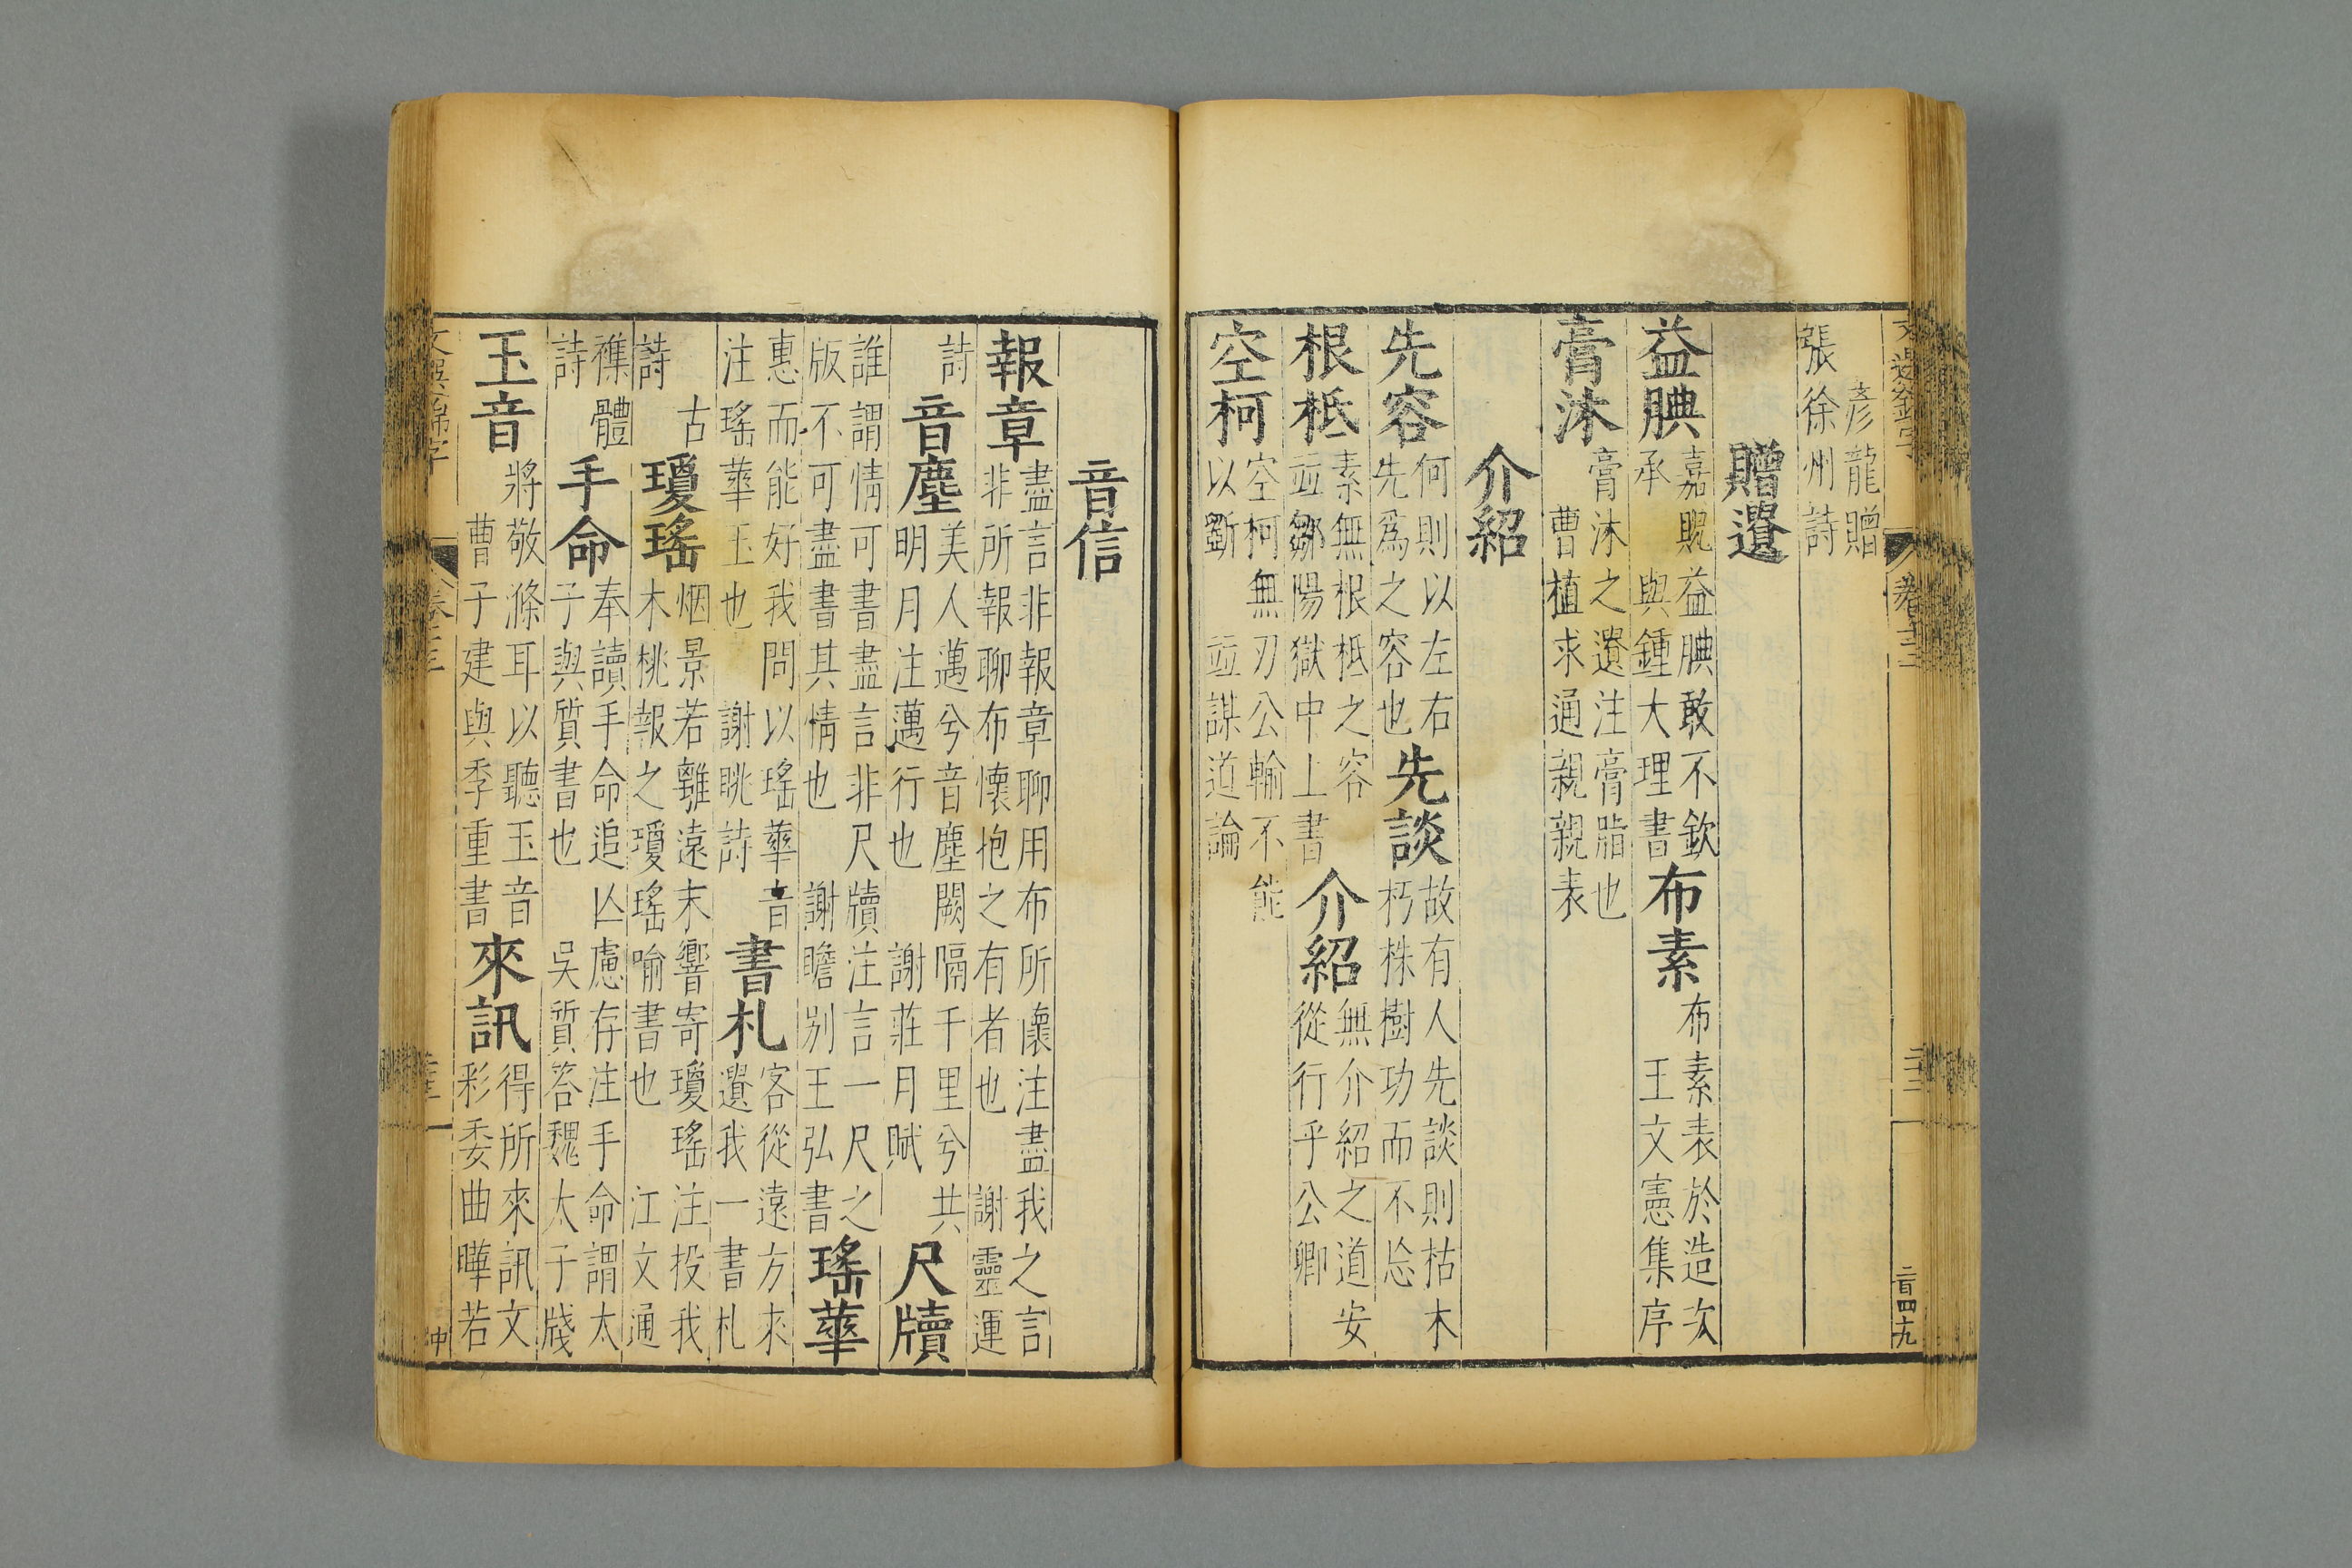 彥龍贈
張徐州詩
贈遺
益腆
嘉貺益腆敢不欽
承 與鍾大理書
布素
布素表於造次
王文憲集序
膏沐
膏沐之遺注膏脂也
曹植求通親親表
介紹
先容
何則以左右
先爲之容也
先談
故有人先談則枯木
朽株樹功而不忘
根柢
素無根柢之容
並鄒陽獄中上書
介紹
無介紹之道安
從行乎公卿
空柯
空柯無刃公輸不能
以斲 並謀道論
卷十三
二百四十九
音信
報章
盡言非報章聊用布所懷注盡我之言
非所報聊布懷抱之有者也 謝靈運
詩
音塵
美人邁兮音塵闕隔千里兮共
明月注邁行也 謝莊月賦
尺牘
誰謂情可書盡言非尺牘注言一尺之
版不可盡書其情也 謝瞻別王弘書
瑤華
惠而能好我問以瑤華音
注瑤華玉也 謝眺詩
書札
客從遠方來
遺我一書札
古
詩
瓊瑤
烟景若離遠末響寄瓊瑤注投我
木桃報之瓊瑤喻書也 江文通
襍體
詩
手命
奉讀手命追亾慮存注手命謂太
子與質書也 吳質荅魏太子牋
玉音
將敬滌耳以聽玉音
曹子建與季重書
來訊
得所來訊文
彩委曲曄若
文選錦字
中